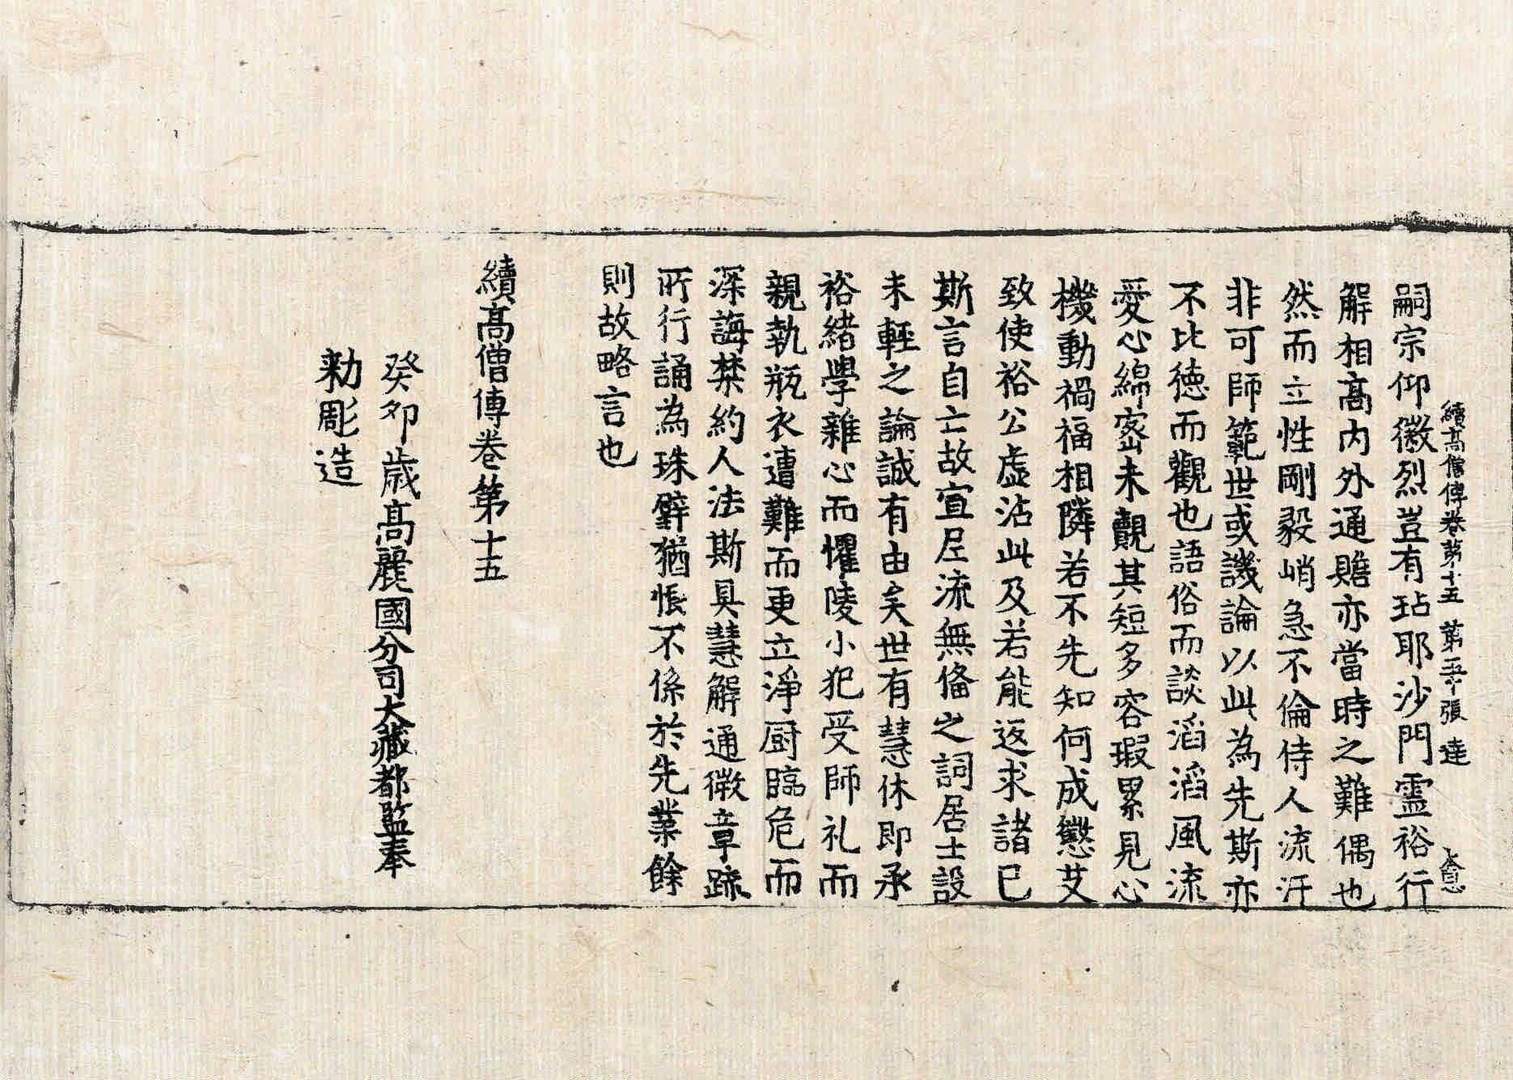 續高僧傳卷第十五 第五十張 達
嗣宗仰徽烈豈有玷耶沙門靈裕行
解相高內外通贍亦當時之難偶也
然而立性剛毅峭急不倫侍人流汗
非可師範世或譏論以此為先斯亦
不比德而觀也語俗而談滔滔風流
愛心綿密未覿其短多容瑕累見心
機動禍福相隣若不先知何成懲艾
致使裕公虛沾此及若能返求諸已
斯言自亡故宣尼流無俻之詞居士設
未輕之論誠有由矣世有慧休即承
裕緒學雜心而懼陵小犯受師礼而
親執瓶衣遭難而更立淨厨臨危而
深誨禁約人法斯具慧解通微章疏
所行誦為珠璧猶悵不係於先業餘
則故略言也
續高僧傳卷第十五
癸卯歲高麗國分司大藏都監奉
勅彫造